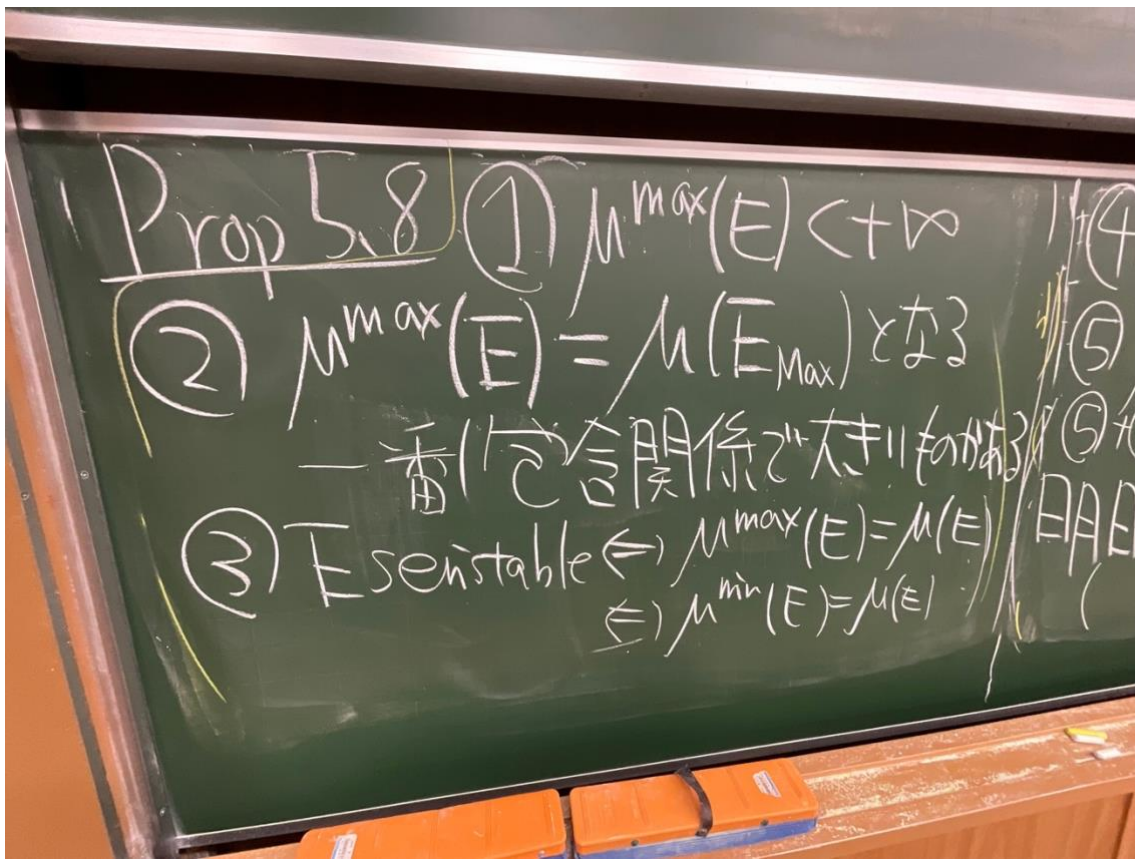 Prop 5.8 ① μ^max(E) < +∞
② μ^max(E) = μ(E_Max) となる
一番包含関係で大きいものがある
③ E semistable ⇔ μ^max(E) = μ(E)
⇔ μ^min(E) = μ(E)
④
⑤
⑤
明
(